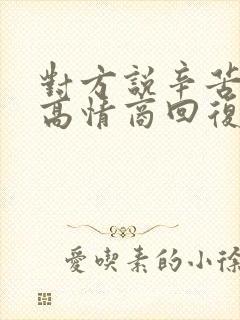 對方說辛苦
高情商回復
愛喫素的小徐